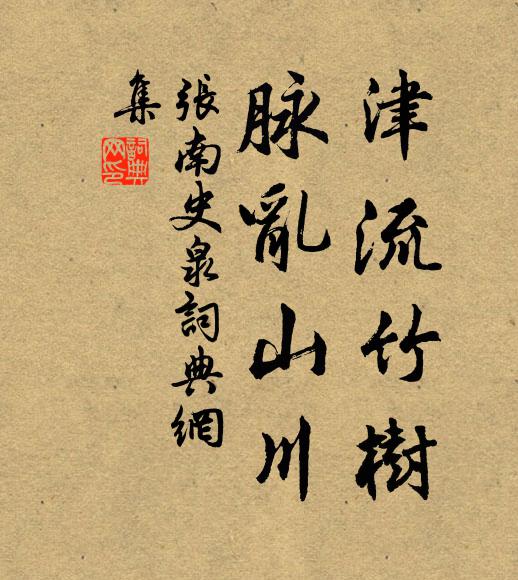 津流竹樹
脉亂山川
張南史泉詞典網
集
詞典
网印